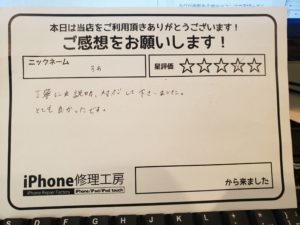 本日は当店をご利用頂きありがとうございます!
ご感想をお願いします!
ニックネーム
星評価 ☆☆☆☆☆
丁寧に説明、対応して下さいました。
とても良かったです。
iPhone修理工房
iPhone Repair Factory iPhone/iPad/iPod touch
から来ました